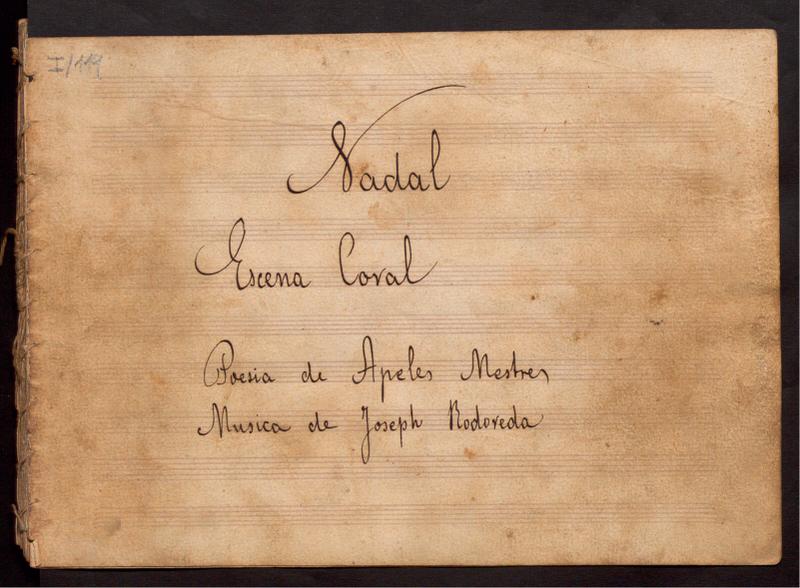 I/119
Nadal
Escena Coral
Poesia de Apeles Mestres
Musica de Joseph Rodoreda